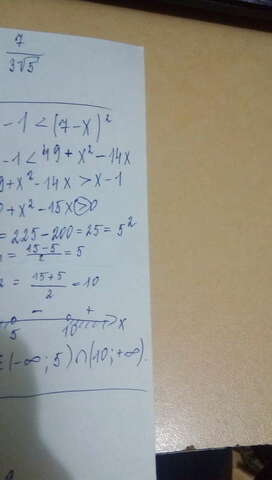 7
3√5
-1 < (7-x)²
-1 < 49 + x² - 14x
9 + x² - 14x > x - 1
0 + x² - 15x > 0
= 225 - 200 = 25 = 5²
= 15-5/2 = 5
2 = 15+5/2 = 10
- +
5 10 x
(-∞; 5) ∩ (10; +∞).